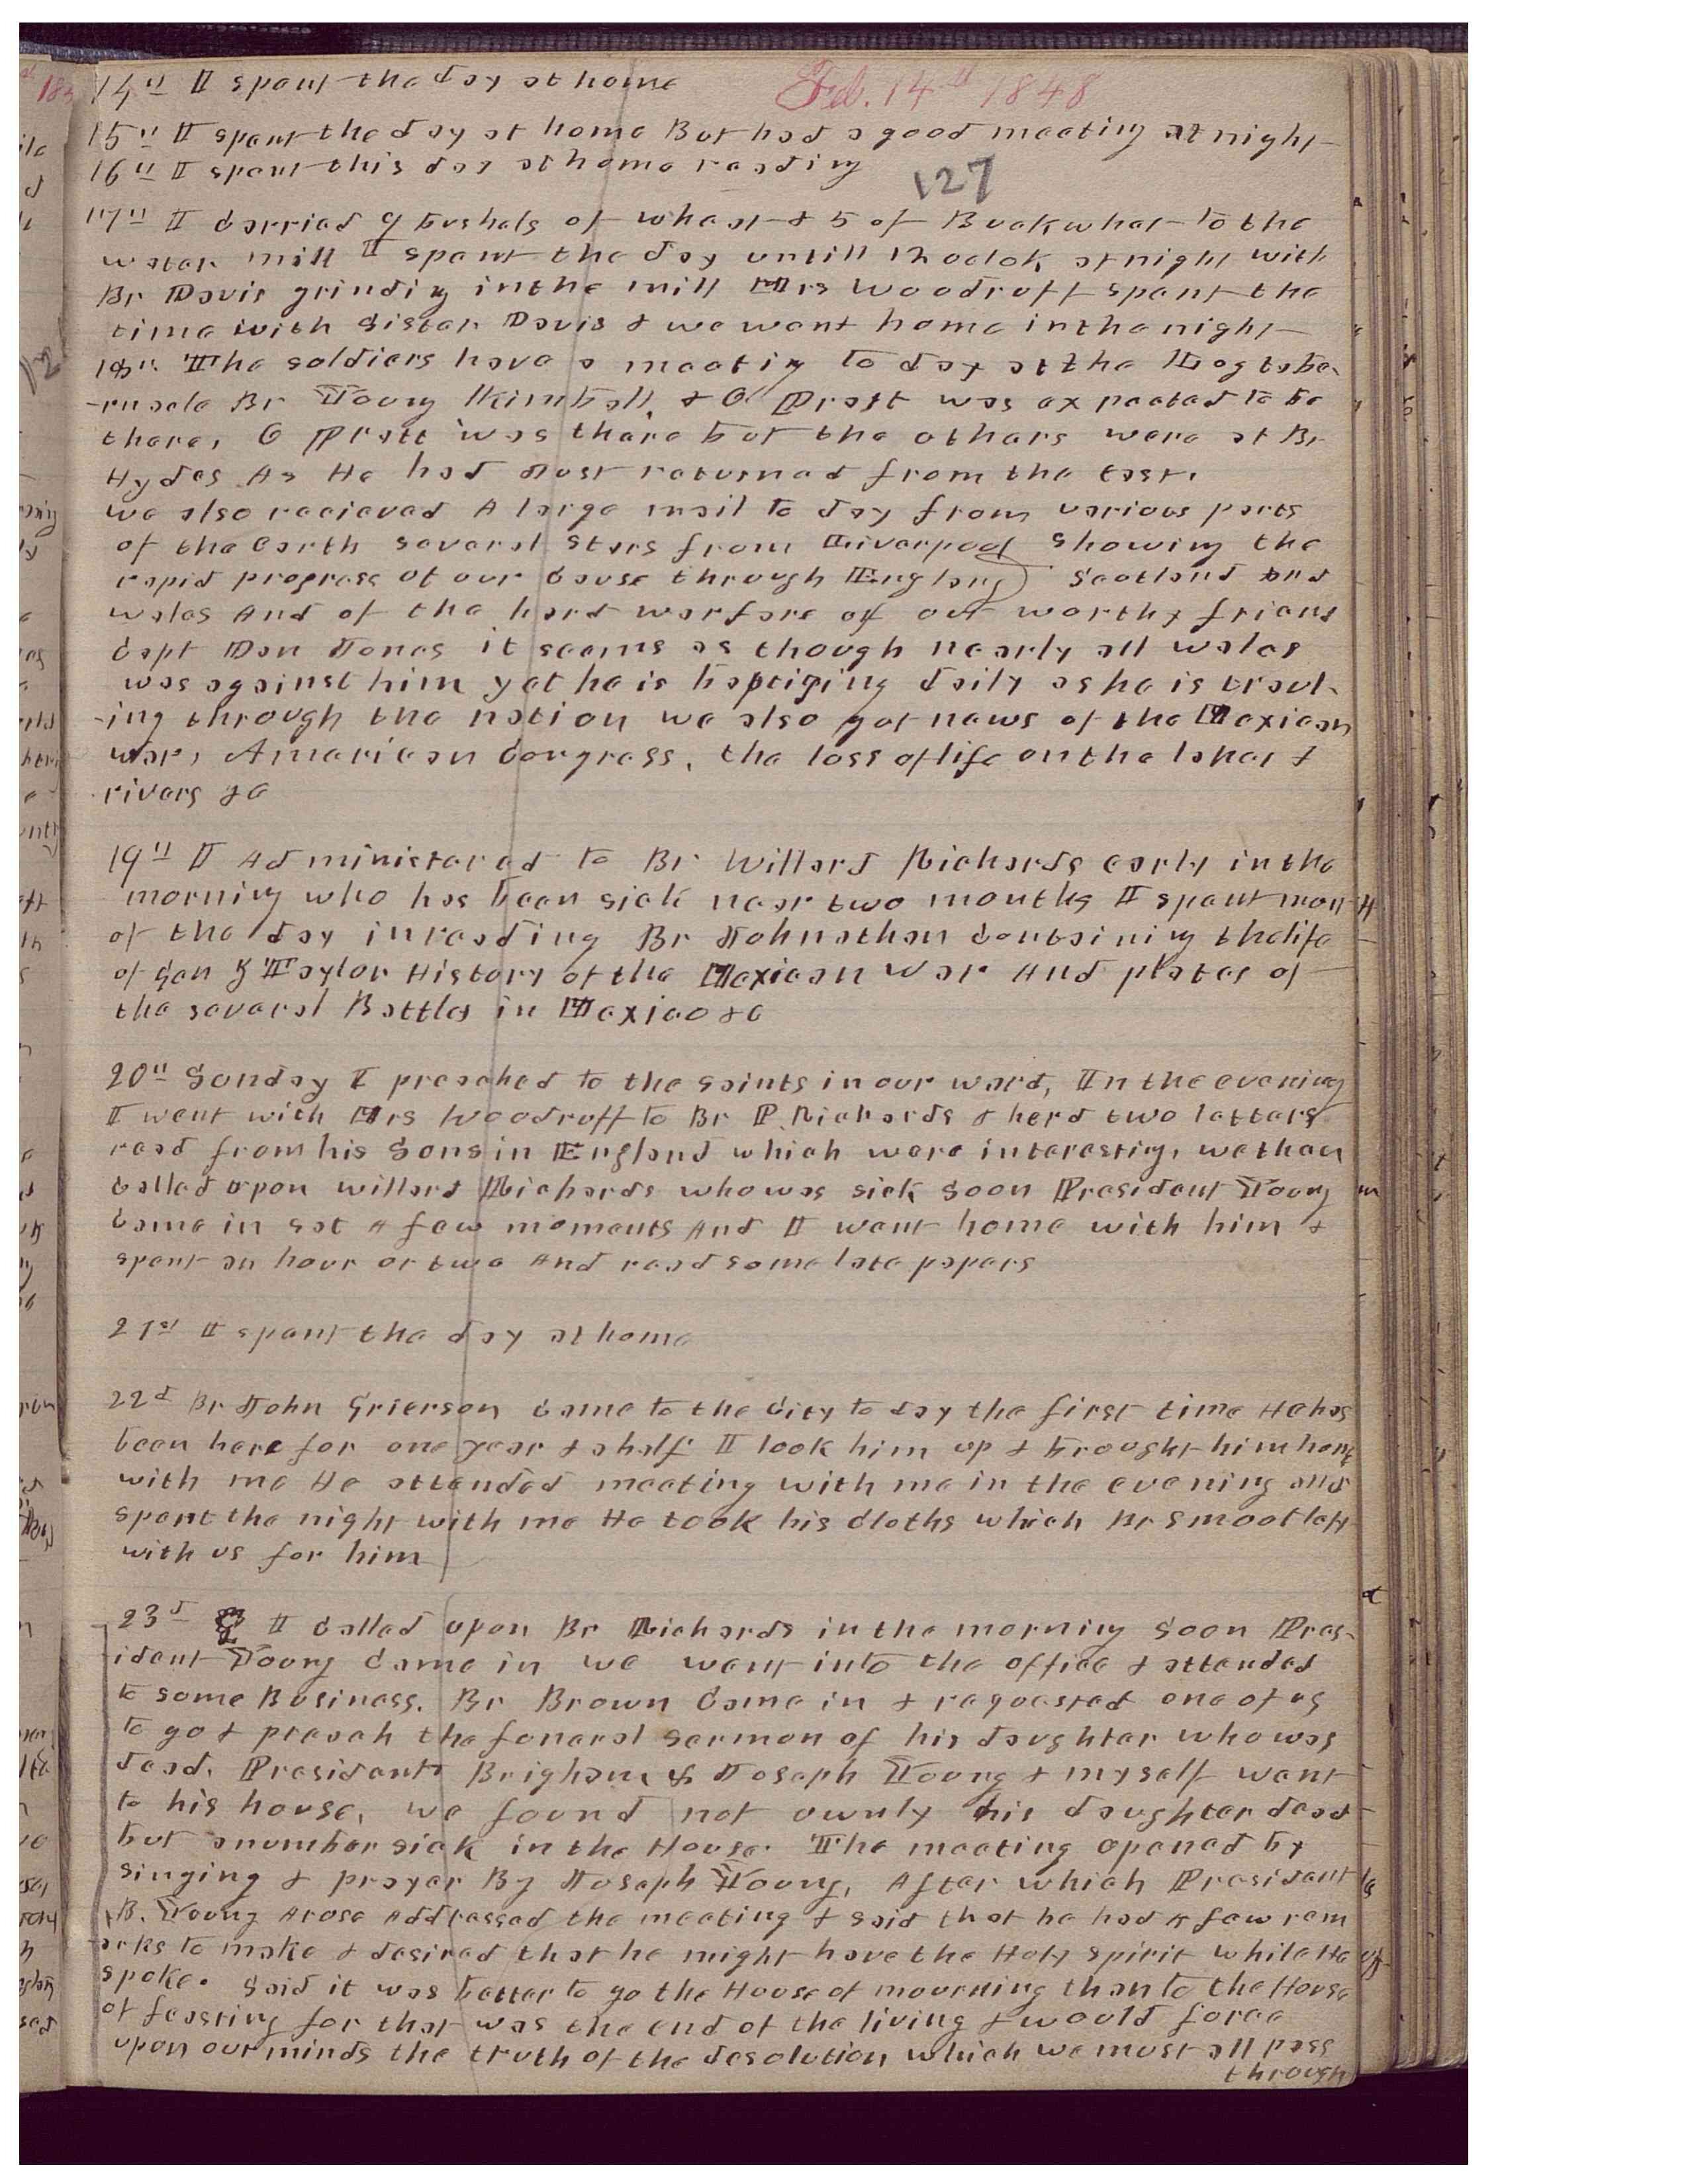 14th I spent the day at home
Feb. 14th 1848
15th I spent the day at home But had a good meeting at night
16th I spent this day at home reading
127
17th I carried 9 bushels of wheat & 5 of Buckwhat to the
water mill I spent the day untill 12 oclok at night with
Br Davis grinding in the mill Mrs Woodruff spent the
time with Sister Davis & we went home in the night
18th The soldiers have a meeting to day at the Log taber-
-nacle Br Young Kimball, & O Pratt was expected to be
there, O Pratt was there but the others were at Br
Hydes As He had Just returned from the East.
we also recieved A large mail to day from various parts
of the earth several Stars from Liverpool Showing the
rapid progress of our cause through England Scotland and
wales And of the hard warfare of our worthy friend
Capt Dan Jones it seems as though nearly all wales
was against him yet he is baptizing daily as he is travl-
-ing through the nation we also got news of the Mexican
war, American Congress, the loss of life on the lakes &
rivers &c
19th I Administered to Br Willard Richards early in the
morning who has been sick near two months I spent most
of the day in reading Br Johnathan containing the life
of Gen Z Taylor History of the Mexican war And plates of
the several Battles in Mexico &c
20th Sunday I preached to the saints in our ward, In the evening
I went with Mrs Woodruff to Br P. Richards & herd two letters
read from his Sons in England which were interesting, we then
called upon willard Richards who was sick Soon President Young
came in sat A few moments And I went home with him &
spent an hour or two And read some late papers
21st I spent the day at home
22d Br John Grierson came to the city to day the first time He has
been here for one year & a half I look him up & brought him home
with me He attended meeting with me in the evening and
spent the night with me He took his cloths which Br Smoot left
with us for him
23d I called upon Br Richards in the morning Soon Pres-
ident Young came in we went into the office & attended
to some Business. Br Brown came in & requested one of us
to go & preach the funeral Sermon of his daughter who was
dead. Presidents Brigham & Joseph Young & myself went
to his house, we found not ownly his daughter dead
but a number sick in the House. The meeting opened by
singing & prayer By Joseph Young, After which President
B. Young Arose Addressed the meeting & said that he had A few rem
-arks to make & desired that he might have the Holy spirit while He
spoke. Said it was better to go the House of mourning than to the House
of feasting for that was the end of the living & would force
upon our minds the truth of the desolution which we must all pass
through